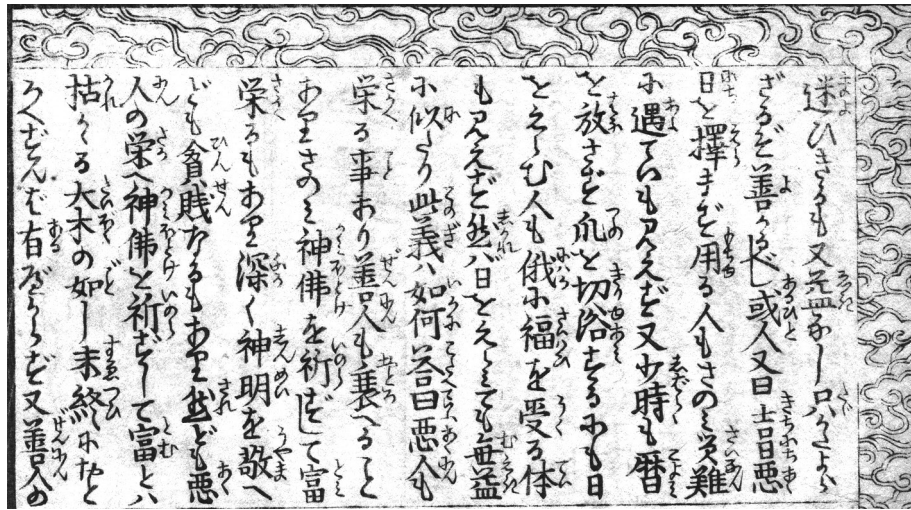 迷ひきるも又益なし只かたよら
ざるぞ善かるべし或人又曰吉日悪
日を擇まず用る人もさのミ災難
に遇ていも見えず又少時も暦
を放さず爪を切浴するにも日
をえらむ人も俄に福を受る体
も見えず然ハ日をえらミても無益
に似たり此義ハ如何答曰悪人も
栄る事あり善人も衰へること
ありさのミ神佛を祈ずして富
栄るもあり深く神明を敬へ
ども貧賎なるもあり然ども悪
人の栄へ神佛を祈ずして富とハ
枯かゝる大木の如し末終にたを
ろへずんば有べからず又善人の